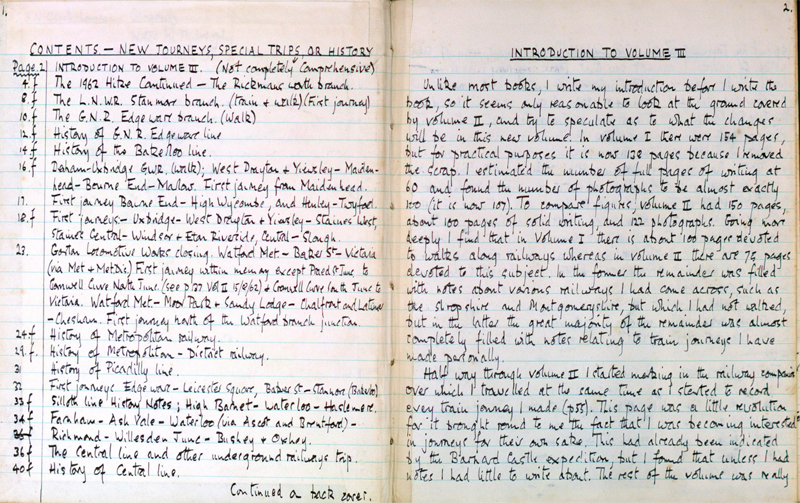 1.
CONTENTS - NEW JOURNEYS, SPECIAL TRIPS, OR HISTORY
Page. 2 INTRODUCTION TO VOLUME III. (Not completely Comprehensive)
4.f The 1962 Hitze Continued - The Rickmans worth branch.
8.f The L.N.W.R. Stanmore branch. (Train & walk) (First journey)
10.f The G.N.R. Edgware branch. (Walk)
12.f History of G.N.R. Edgware line
14.f History of the Bakerloo line.
16.f Denham-Uxbridge GWR. (walk); West Drayton & Yiewsley - Maiden-
head - Bourne End - Marlow. First journey from Maidenhead.
17. First journey Bourne End - High Wycombe, and Henley - Twyford.
18.f First journeys - Uxbridge - West Drayton & Yiewsley - Staines West,
Staines Central - Windsor & Eton Riverside, Central - Slough.
23. Gorton Locomotive Works closing. Watford Met - Baker St - Victoria
(via Met & Met Dis) First journey within memory except Praed St June to
Cromwell Curve North June. (see p127 Vol II 15/8/62) & Cromwell Curve South June to
Victoria. Watford Met - Moor Park & Sandy Lodge - Chalfont and Latimer
- Chesham. First journey north of the Watford branch junction.
24.f History of Metropolitan railway.
29.f History of Metropolitan - District railway.
31 History of Picadilly line.
32 First journeys Edgware - Leicester Square, Baker St - Stanmore (Bakerloo).
33.f Silloth line History Notes; High Barnet - Waterloo - Haslemere.
34.f Farnham - Ash Vale - Waterloo (via Ascot and Brentford) -
35.f Richmond - Willesden June - Bushey & Oxhey.
36.f The Central line and other underground railways trip.
40.f History of Central line.
Continued on back cover.
2.
INTRODUCTION TO VOLUME III
Unlike most books, I write my introduction before I write the
book, so it seems only reasonable to look at the ground covered
by volume II, and try to speculate as to what the changes
will be in this new volume. In volume I there were 154 pages,
but for practical purposes it is now 138 pages because I removed
the scrap. I estimated the number of full pages of writing at
60 and found the number of photographs to be almost exactly
100 (it is now 107). To compare figures, volume II had 150 pages,
about 100 pages of solid writing, and 122 photographs. Going more
deeply I find that in Volume I there is about 100 pages devoted
to walks along railways whereas in volume II there are 75 pages
devoted to this subject. In the former the remainder was filled
with notes about various railways I had come across, such as
the Shropshire and Montgomeryshire, but which I had not walked,
but in the latter the great majority of the remainder was almost
completely filled with notes relating to train journeys I have
made personally.
Half way through volume II I started marking in the railway companies
over which I travelled at the same time as I started to record
every train journey I made (p55). This page was a little revolution
for it brought round to me the fact that I was becoming interested
in journeys for their own sake. This had already been indicated
by the Barnard Castle expedition but I found that unless I had
notes I had little to write about. The rest of the volume was really